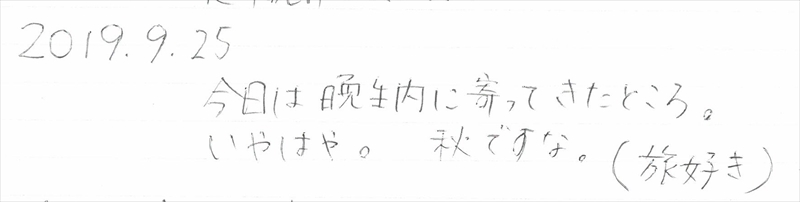 2019.9.25
今日は晩生内に寄ってきたところ。
いやはや。 秋ですな。(旅好き)